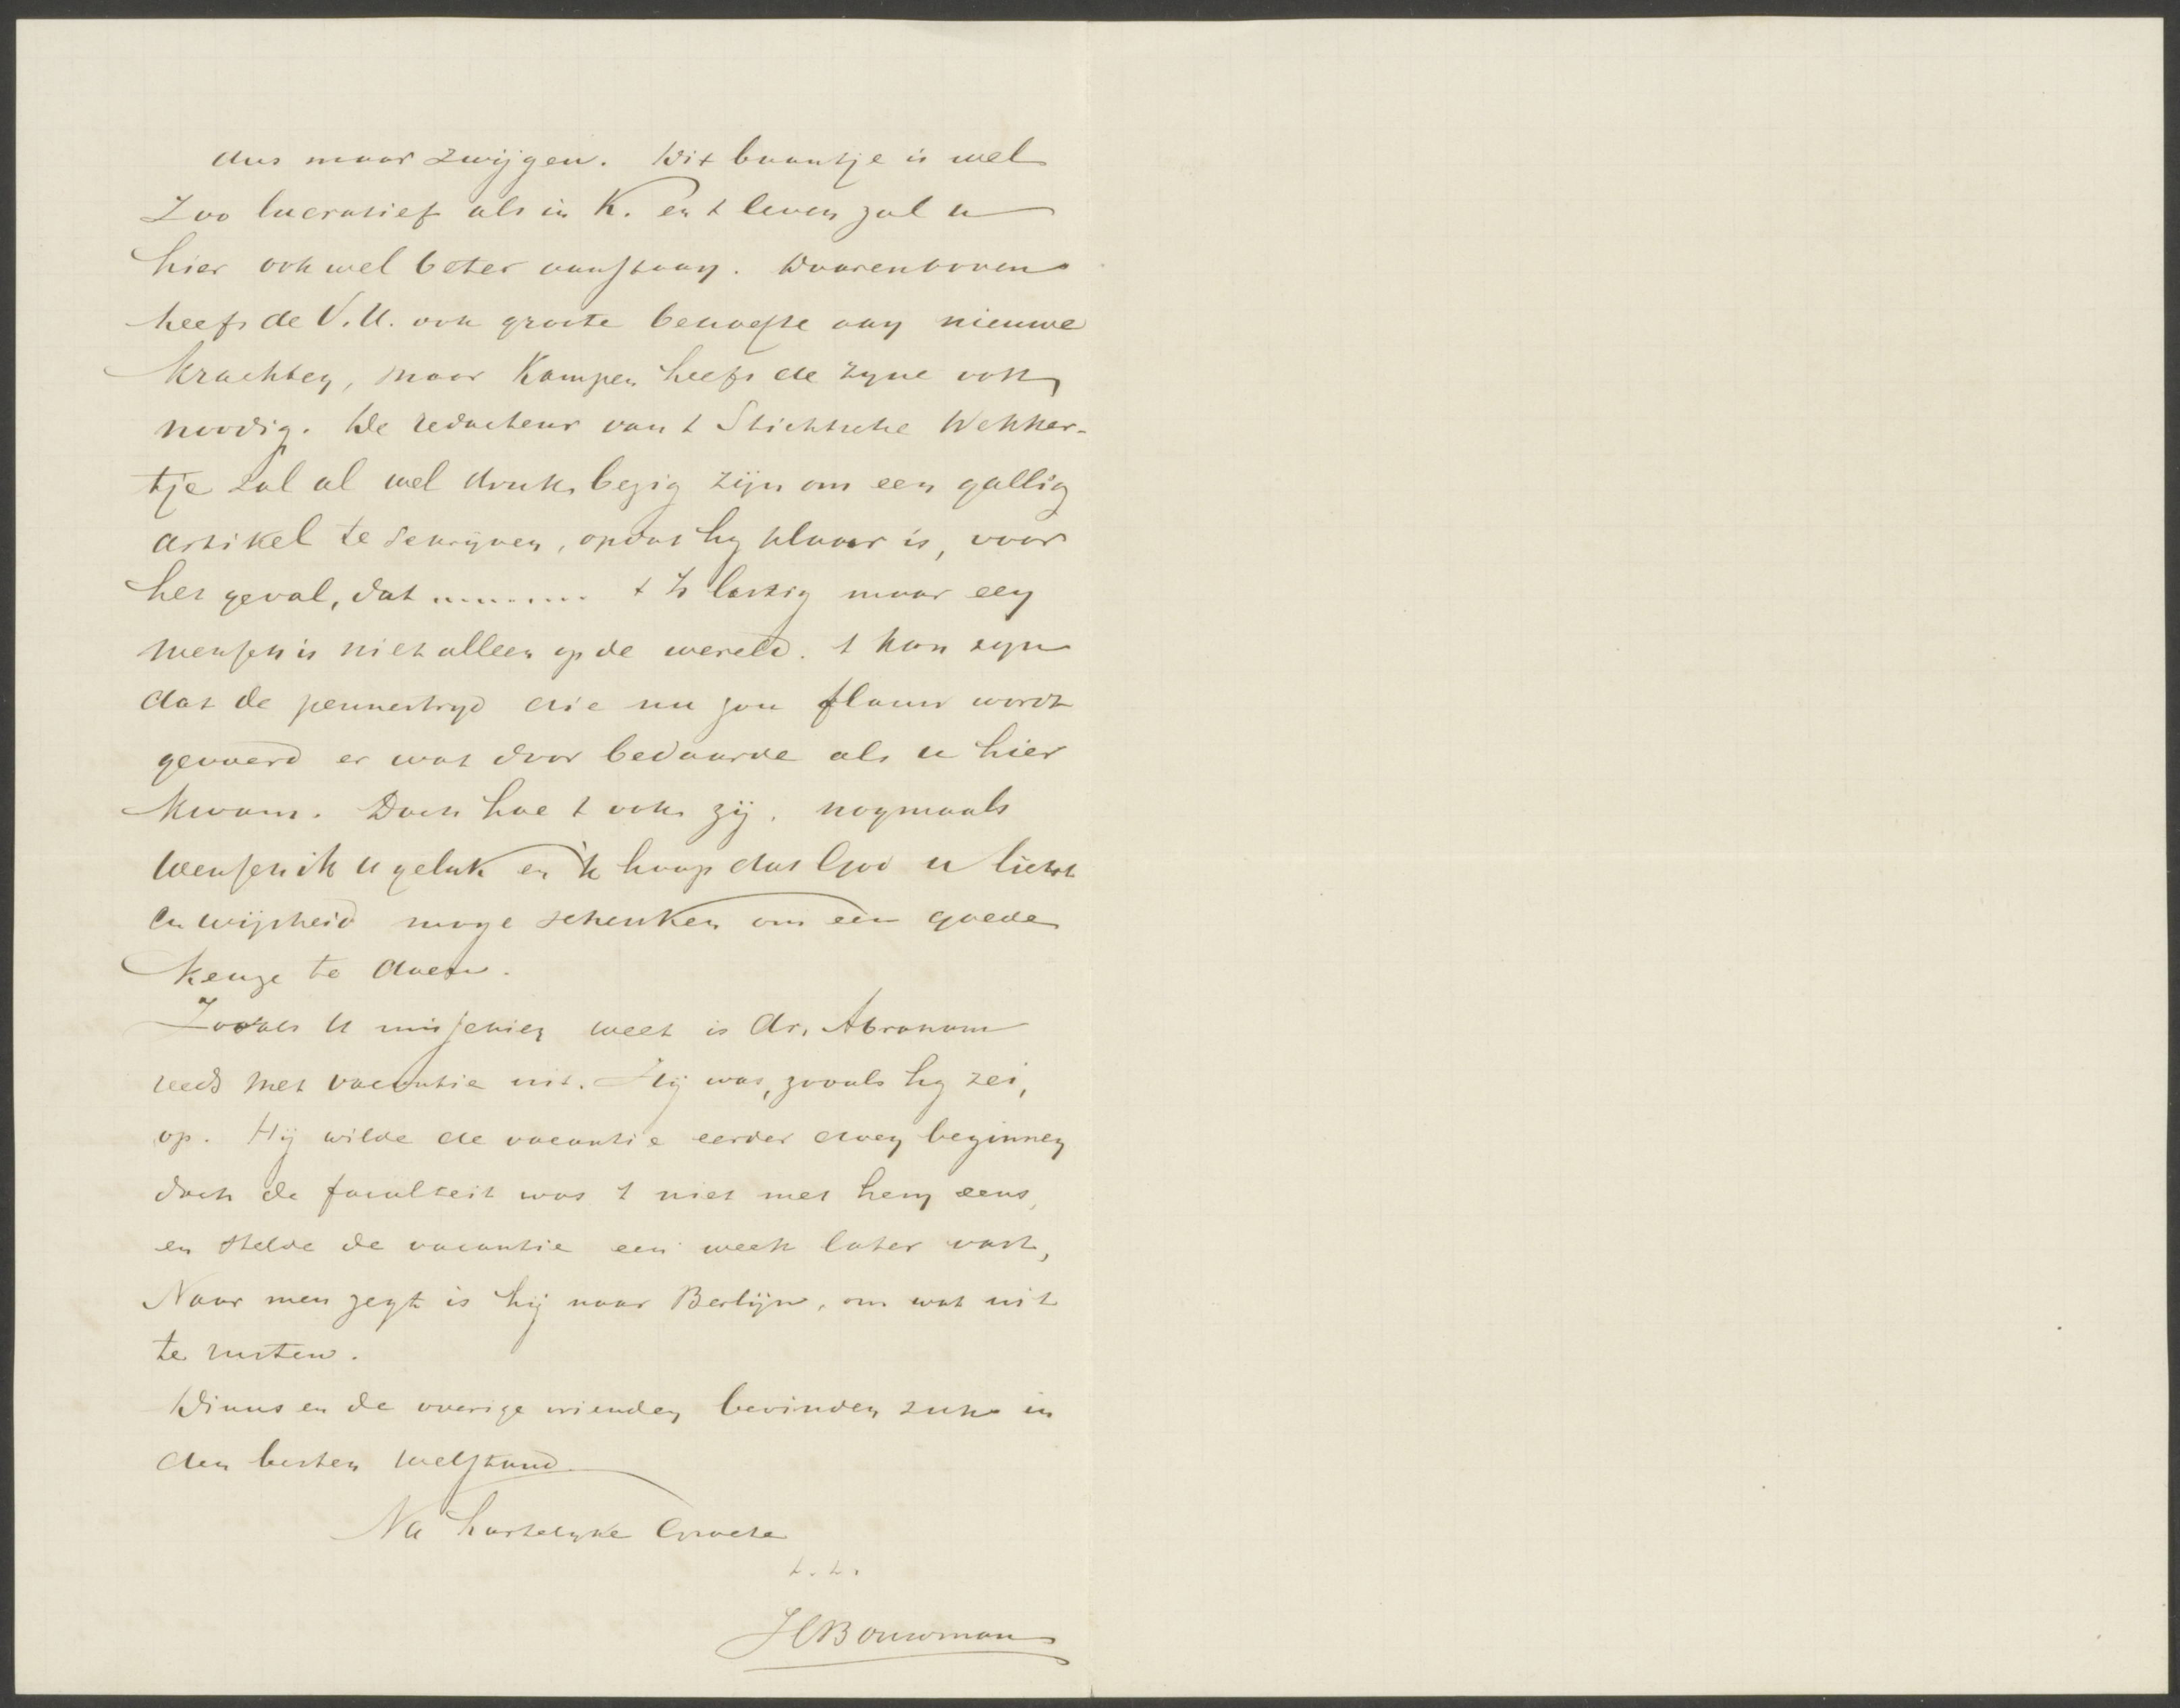 dus maar zwijgen. Dit baantje is wel
zoo lucratief als in K. en 't leven zal u
hier ook wel beter aanstaan. Daarenboven
heeft de V.U. ook groote behoefte aan nieuwe
krachten, maar Kampen heeft de zijne ook
noodig. De redacteur van 't Stichtsche Wekker-
tje zal al wel druk bezig zijn om een gallig
artikel te schrijven, opdat hij klaar is, voor
het geval, dat ......... 't Is lastig maar een
mensch is niet alleen op de wereld. 't kan zijn
dat de pennestrijd die nu zou flauw wordt
gevoerd er wat door bedaarde als u hier
kwam. Doch hoe 't ook zij, nogmaals
wensch ik u geluk en 'k hoop dat God u licht
en wijsheid moge schenken om een goede
keuze te doen.
Zooals U misschien weet is dr. Abraham
reeds met vacantie uit. Hij was, zooals hij zei,
op. Hij wilde de vacantie eerder doen beginnen
doch de faculteit was 't niet met hem eens,
en stelde de vacantie een week later vast,
Naar men zegt is hij naar Berlijn, om wat uit
te rusten.
Dinus en de overige vrienden bevinden zich in
den besten welstand.
Na hartelijke Groete
t.t.
H Bouwman